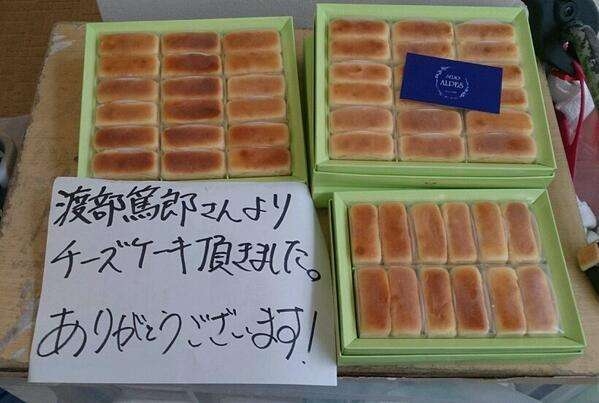 ALPES
渡部篤郎さんより
チーズケーキ頂きました。
ありがとうございます!